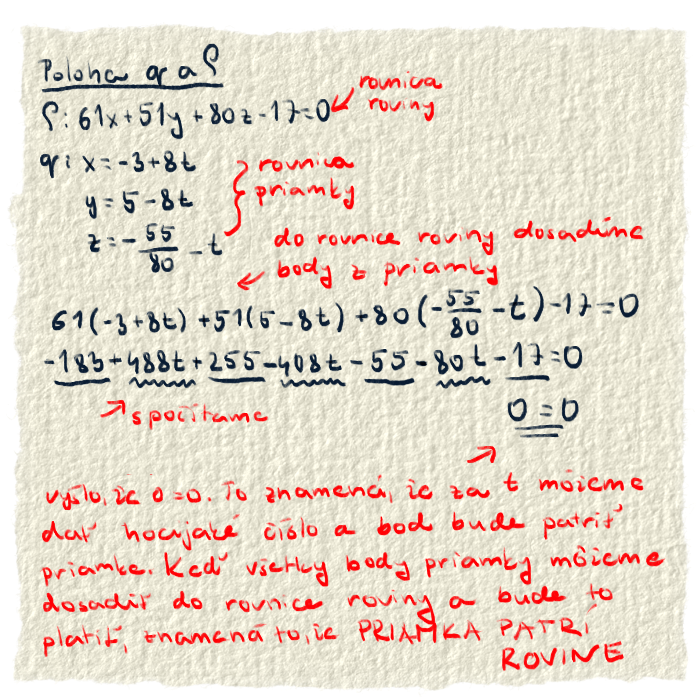 Poloha q a ρ
ρ: 61x+51y+80z-17=0
rovnica
roviny
q: x=-3+8t
y=5-8t
z=-55/80-t
rovnica
priamky
do rovnice roviny dosadíme
body z priamky
61(-3+8t)+51(5-8t)+80(-55/80-t)-17=0
-183+488t+255-408t-55-80t-17=0
spočítame
0=0
vyšlo, že 0=0. To znamená, že za t môžeme
dať hocijaké číslo a bod bude patriť
priamke. Keď všetky body priamky môžeme
dosadiť do rovnice roviny a bude to
platiť, znamená to, že PRIAMKA PATRÍ
ROVINE